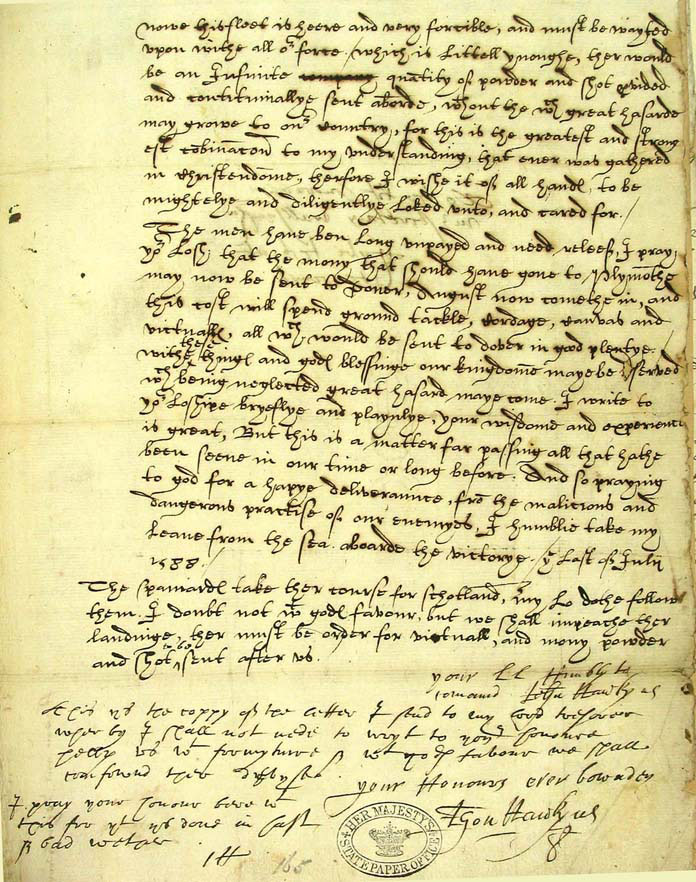 nowe his fleet is heere and very forcible, and must be wayted
upon withe all oʳ force, which is littell ynoughe, ther would
be an Infinite quātity of powder and shot pʳvided
and contitinuallye sent abrode, wᵗhout the wᶜʰ great hasarde
may growe to ouʳ country, for this is the greatest and strong
est cōbinacōn to my understandinge, that ever was gathered
in christendome, therfore I wishe it of all hands to be
mightelye and diligentlye loked unto, and cared for. /
The men have ben long unpayed and need releef, I pray
yoʳ Loʳ: that the mony that should have gone to plymothe
may now be sent to Dover, August now comethe in, and
this cost will spend ground tackle, cordage, canvas and
victualls, all wᶜʰ would be sent to dover in good plentye.
withe these things and gods blessinge our kingdome maye be pʳserved
wᶜʰ being neglected great hasard maye come. I write to
yoʳ Loʳshipe bryeflye and playnlye, your wisdome and experience
is great, But this is a matter far passing all that hathe
been seene in our time or long before. And so praying
to god for a happye deliverannce, frō the malicious and
dangerous practise of our enemyes, I humblie take my
leave from the sea. aboarde the victorye. yᵉ last of Julii
1588. /
The spaniards take ther course for schotland, my Lo dothe follow
them. I doubt not wᵗ gods favour, but we shall impeache ther
landinge, ther must be order for victuall, and mony powder
and shot to be sent after us.
your LL Humbly to
comand John Hawkyns
this ys the coppy of the letter I send to my Lord tresorer
wher by I shall not nede to wryt to yoʳ honour
helpe us wᵗ furnyture & wᵗ gods favour we shall
confound ther
your Honours ever bowndēn
John Hawkyns
I pray your honour bere wᵗ
this for yt ys done in hast
& bad wether
JH
165
HER MAJESTY'S
STATE PAPER OFFICE